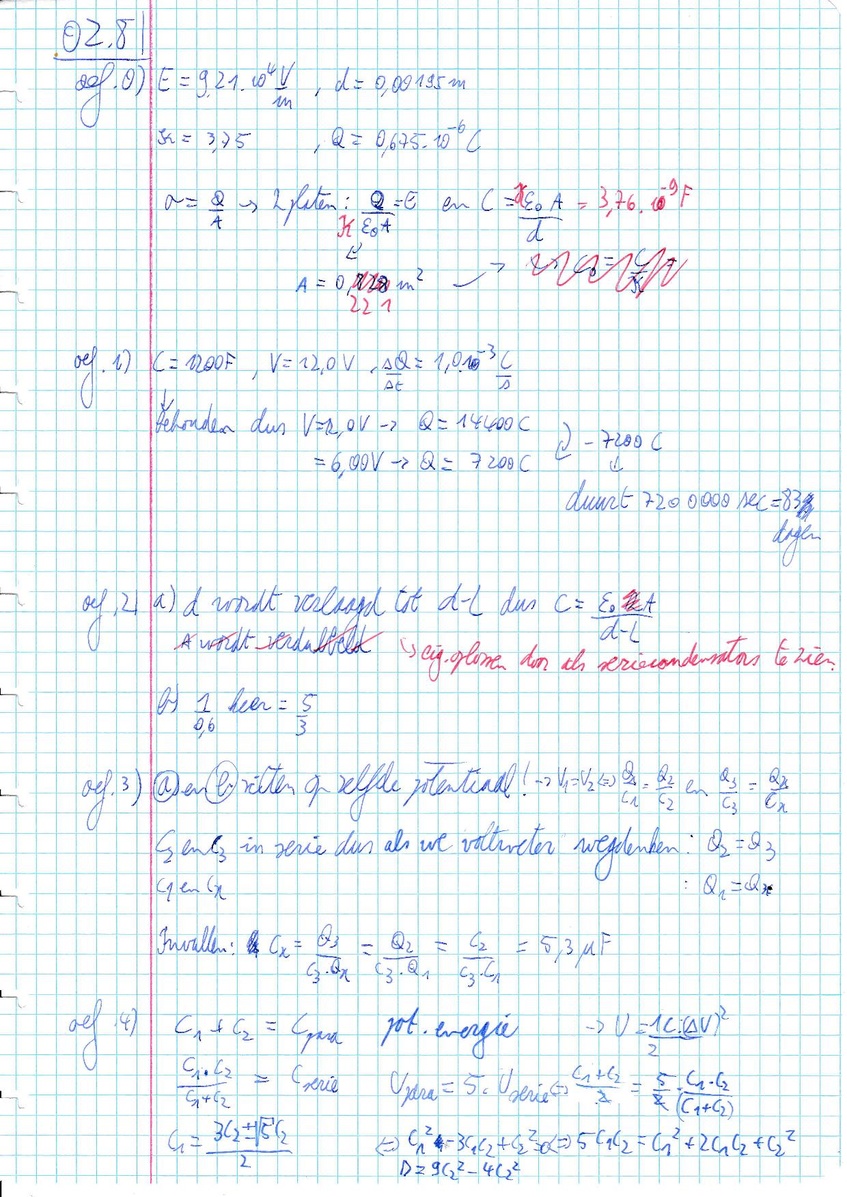 O2.8
oef.0) E = 9,21.10⁴ V/m , d = 0,00195 m
K = 3,75 , Q = 0,675.10⁻⁶ C
σ = Q/A → 2 platen: Q/(Kε₀A) = E en C = Kε₀A/d = 3,76.10⁻⁹ F
A = 0, m²
221
oef.1) C = 1200F , V = 12,0V , ΔQ/Δt = 1,0.10⁻³ C/s
behouden dus V=12,0V → Q = 14400C
= 6,00V → Q = 7200C
- 7200 C
duurt 7200000 sec = 83
dagen
oef.2) a) d wordt verlaagd tot d-L dus C = ε₀A/(d-L)
A wordt verdubbeld
↳ eig. oplossen door als seriecondensators te zien.
b) 1/0,6 keer = 5/3
oef.3) ⓐ en ⓑ zitten op zelfde potentiaal! → V₁=V₂ ⇔ Q₁/C₁ = Q₂/C₂ en Q₃/C₃ = Qx/Cx
C₂ en C₃ in serie dus als we voltmeter wegdenken : Q₂ = Q₃
C₁ en Cx : Q₁ = Qx
Invullen: Cx = Q₃/(C₃.Qx) = Q₂/(C₃.Q₁) = C₂/(C₃.C₁) = 5,3 μF
oef.4) C₁ + C₂ = Cpara pot. energie → U = 1C.(ΔV)²/2
C₁.C₂/(C₁+C₂) = Cserie Upara = 5.Userie ⇔ (C₁+C₂)/2 = 5/2 . C₁.C₂/(C₁+C₂)
C₁ = (3C₂±√5C₂)/2 ⇔ C₁² - 3C₁C₂ + C₂² = 0 ⇔ 5C₁C₂ = C₁² + 2C₁C₂ + C₂²
D = 9C₂² - 4C₂²